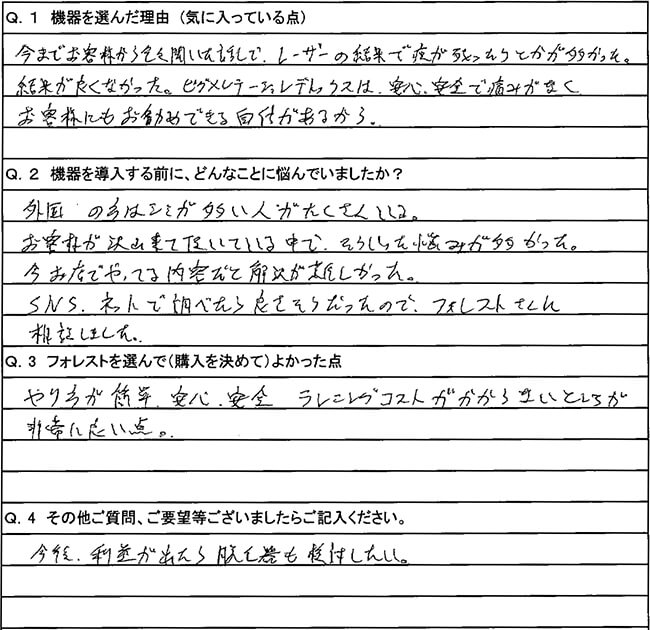 Q. 1 機器を選んだ理由(気に入っている点)
今までお客様から名を聞いた話で、レーザーの結果で痕が残ったりとかが多かった。
結果が良くなかった。ピグメレナードレデックスは、安心、安全で痛みがなく
お客様にもお勧めできる自信があるから。
Q. 2 機器を導入する前に、どんなことに悩んでいましたか?
外国 の方はシミが多い人がたくさんいる。
お客様が沢山来て頂いている中で、そういった悩みが多かった。
今お店でやってる内容だと解決が難しかった。
SNS、ネットで調べたら良さそうだったので、フォレストさんに
相談しました。
Q. 3 フォレストを選んで(購入を決めて)よかった点
やり方が簡単、安心、安全 ランニングコストがかからないところが
非常に良い点。
Q. 4 その他ご質問、ご要望等ございましたらご記入ください。
今後、利益が出たら脱毛器も検討したい。